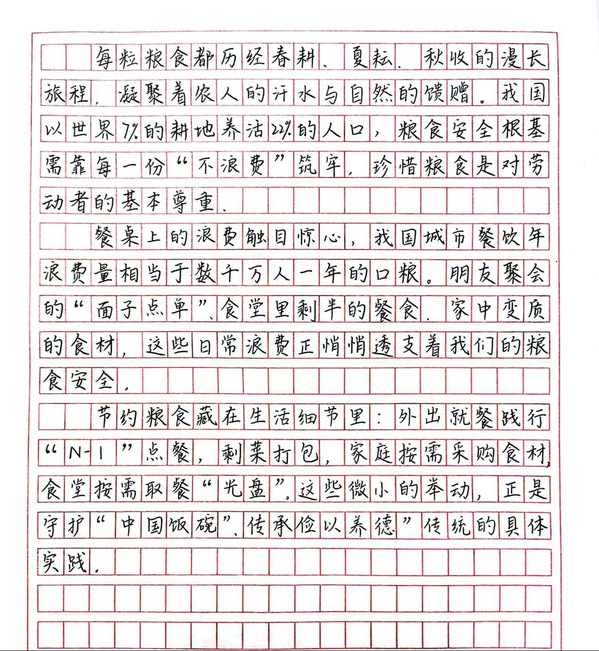 每粒粮食都历经春耕、夏耘、秋收的漫长
旅程，凝聚着农人的汗水与自然的馈赠。我国
以世界7%的耕地养活22%的人口，粮食安全根基
需靠每一份“不浪费”筑牢，珍惜粮食是对劳
动者的基本尊重.
餐桌上的浪费触目惊心，我国城市餐饮年
浪费量相当于数千万人一年的口粮。朋友聚会
的“面子点单”、食堂里剩半的餐食、家中变质
的食材，这些日常浪费正悄悄透支着我们的粮
食安全.
节约粮食藏在生活细节里：外出就餐践行
“N-1”点餐，剩菜打包，家庭按需采购食材，
食堂按需取餐“光盘”.这些微小的举动，正是
守护“中国饭碗”、传承俭以养德”传统的具体
实践.